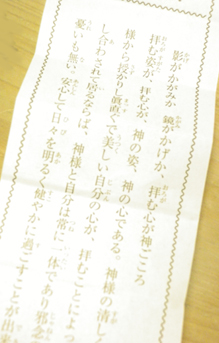 影がかがるか 鏡がかげか、拝む心が神ごころ
拝む姿が、拝む心が、神の姿、神の心である。 神様の清し
様からさがりし眞直ぐで美しい自分の心が、拝むことによっ
し合わされて居るならば、神様と自分は常に一体であり邪念
憂いも無い。安心して日々を明るく健やかに過ごすことが出来